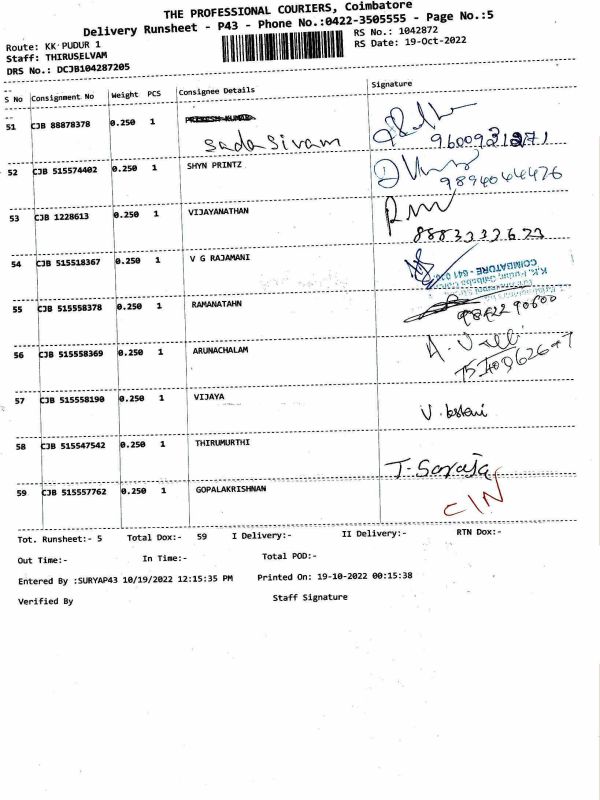 THE PROFESSIONAL COURIERS, Coimbatore
Delivery Runsheet - P43 - Phone No.:0422-3505555 - Page No.:5
Route: KK PUDUR 1
RS No.: 1042872
Staff: THIRUSELVAM
RS Date: 19-Oct-2022
DRS No.: DCJB104287205
S No Consignment No Weight PCS Consignee Details Signature
51 CJB 88878378 0.250 1
sada sivam
52 CJB 515574402 0.250 1 SHYN PRINTZ
9894044426
53 CJB 1228613 0.250 1 VIJAYANATHAN
54 CJB 515518367 0.250 1 V G RAJAMANI
COIMBATORE - 641
55 CJB 515558378 0.250 1 RAMANATAHN
9842290600
56 CJB 515558369 0.250 1 ARUNACHALAM
57 CJB 515558190 0.250 1 VIJAYA
58 CJB 515547542 0.250 1 THIRUMURTHI
T. Saroja
59 CJB 515557762 0.250 1 GOPALAKRISHNAN
C/N
Tot. Runsheet:- 5 Total Dox:- 59 I Delivery:- II Delivery:- RTN Dox:-
Out Time:- In Time:- Total POD:-
Entered By :SURYAP43 10/19/2022 12:15:35 PM Printed On: 19-10-2022 00:15:38
Verified By Staff Signature